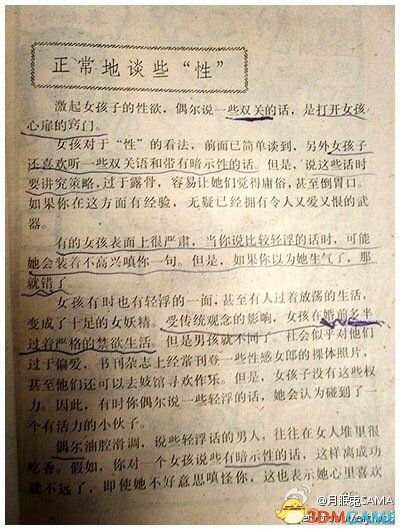 正常地谈些“性”
激起女孩子的性欲，偶尔说一些双关的话，是打开女孩
心扉的窍门。
女孩对于“性”的看法，前面已简单谈到，另外女孩子
还喜欢听一些双关语和带有暗示性的话。但是，说这些话时
要讲究策略，过于露骨，容易让她们觉得庸俗，甚至倒胃口。
如果你在这方面有经验，无疑已经拥有令人又爱又恨的武
器。
有的女孩表面上很严肃，当你说比较轻浮的话时，可能
她会装着不高兴嗔你一句。但是，如果你以为她生气了，那
就错了
女孩有时也有轻浮的一面，甚至有人过着放荡的生活，
变成了十足的女妖精。受传统观念的影响，女孩在婚前多半
过着严格的禁欲生活。但是男孩就不同了。社会似乎对他们
过于偏爱，书刊杂志上经常刊登一些性感女郎的裸体照片，
甚至他们还可以去妓馆寻欢作乐。但是，女孩子没有这些权
力。因此，有时你偶尔说一些轻浮的话，她会认为碰到了一
个有活力的小伙子。
偶尔油腔滑调，说些轻浮话的男人，往往在女人堆里很
吃香。假如，你对一个女孩说些有暗示性的话，这样离成功
就不远了，即使她不好意思嗔怪你，这也表示她心里喜欢
@月眠兎SAMA
3DMGAME